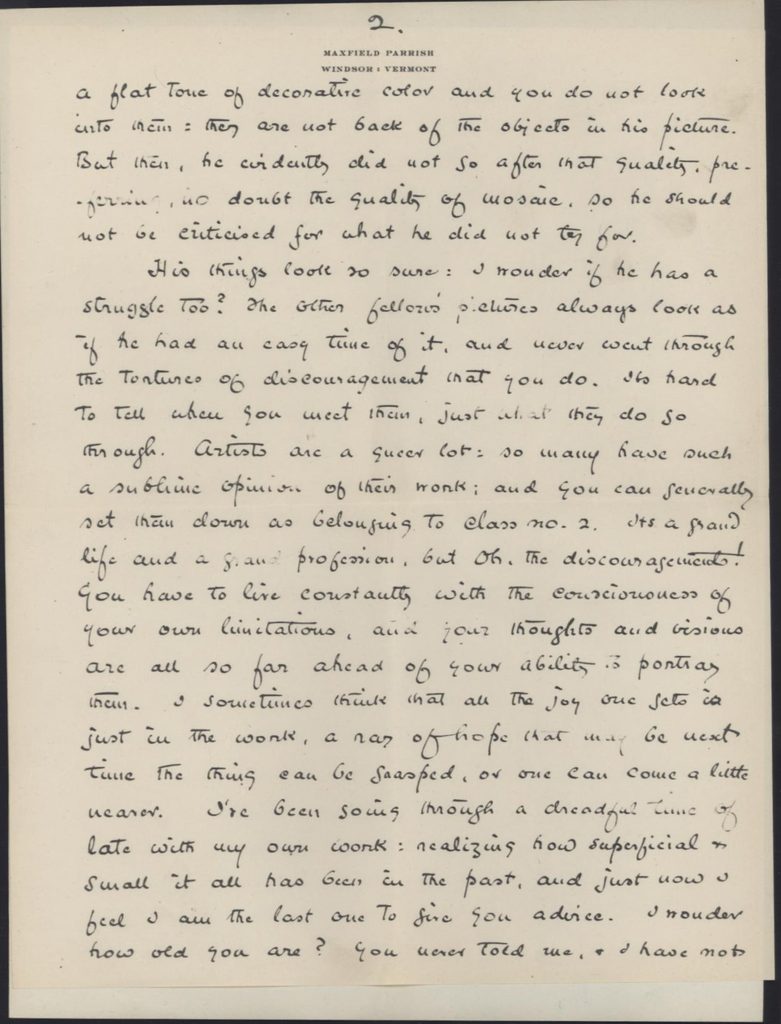 2.
MAXFIELD PARRISH
WINDSOR : VERMONT
a flat tone of decorative color and you do not look
into them : they are not back of the objects in his picture.
But then, he evidently did not go after that quality, pre-
-ferring, no doubt the quality of mosaic, so he should
not be criticised for what he did not try for.
His things look so sure : I wonder if he has a
struggle too? The other fellow's pictures always look as
if he had an easy time of it, and never went through
the tortures of discouragement that you do. Its hard
to tell when you meet them, just what they do go
through. Artists are a queer lot : so many have such
a sublime opinion of their work; and you can generally
set them down as belonging to class no. 2. Its a grand
life and a grand profession, but Oh, the discouragements!
You have to live constantly with the consciousness of
your own limitations, and your thoughts and visions
are all so far ahead of your ability to portray
them. I sometimes think that all the joy one gets is
just in the work, a ray of hope that may be next
time the thing can be grasped, or one can come a little
nearer. I've been going through a dreadful time of
late with my own work : realizing how superficial &
small it all has been in the past, and just now I
feel I am the last one to give you advice. I wonder
how old you are? You never told me, & I have not